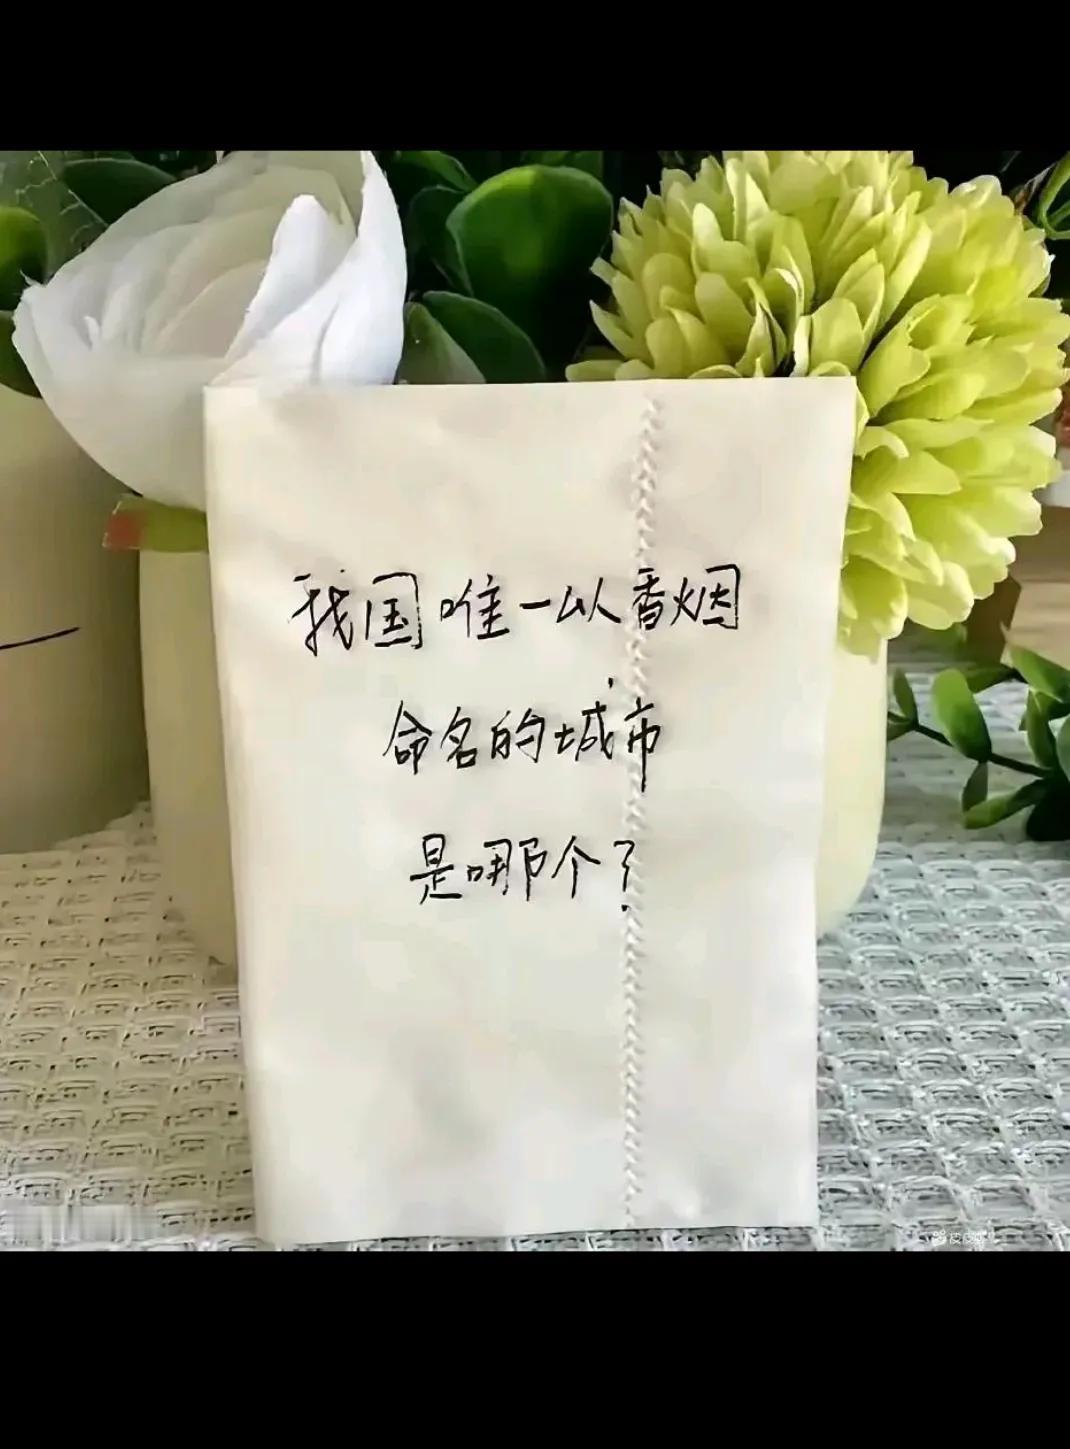 我国唯一以香烟
命名的城市
是哪个?